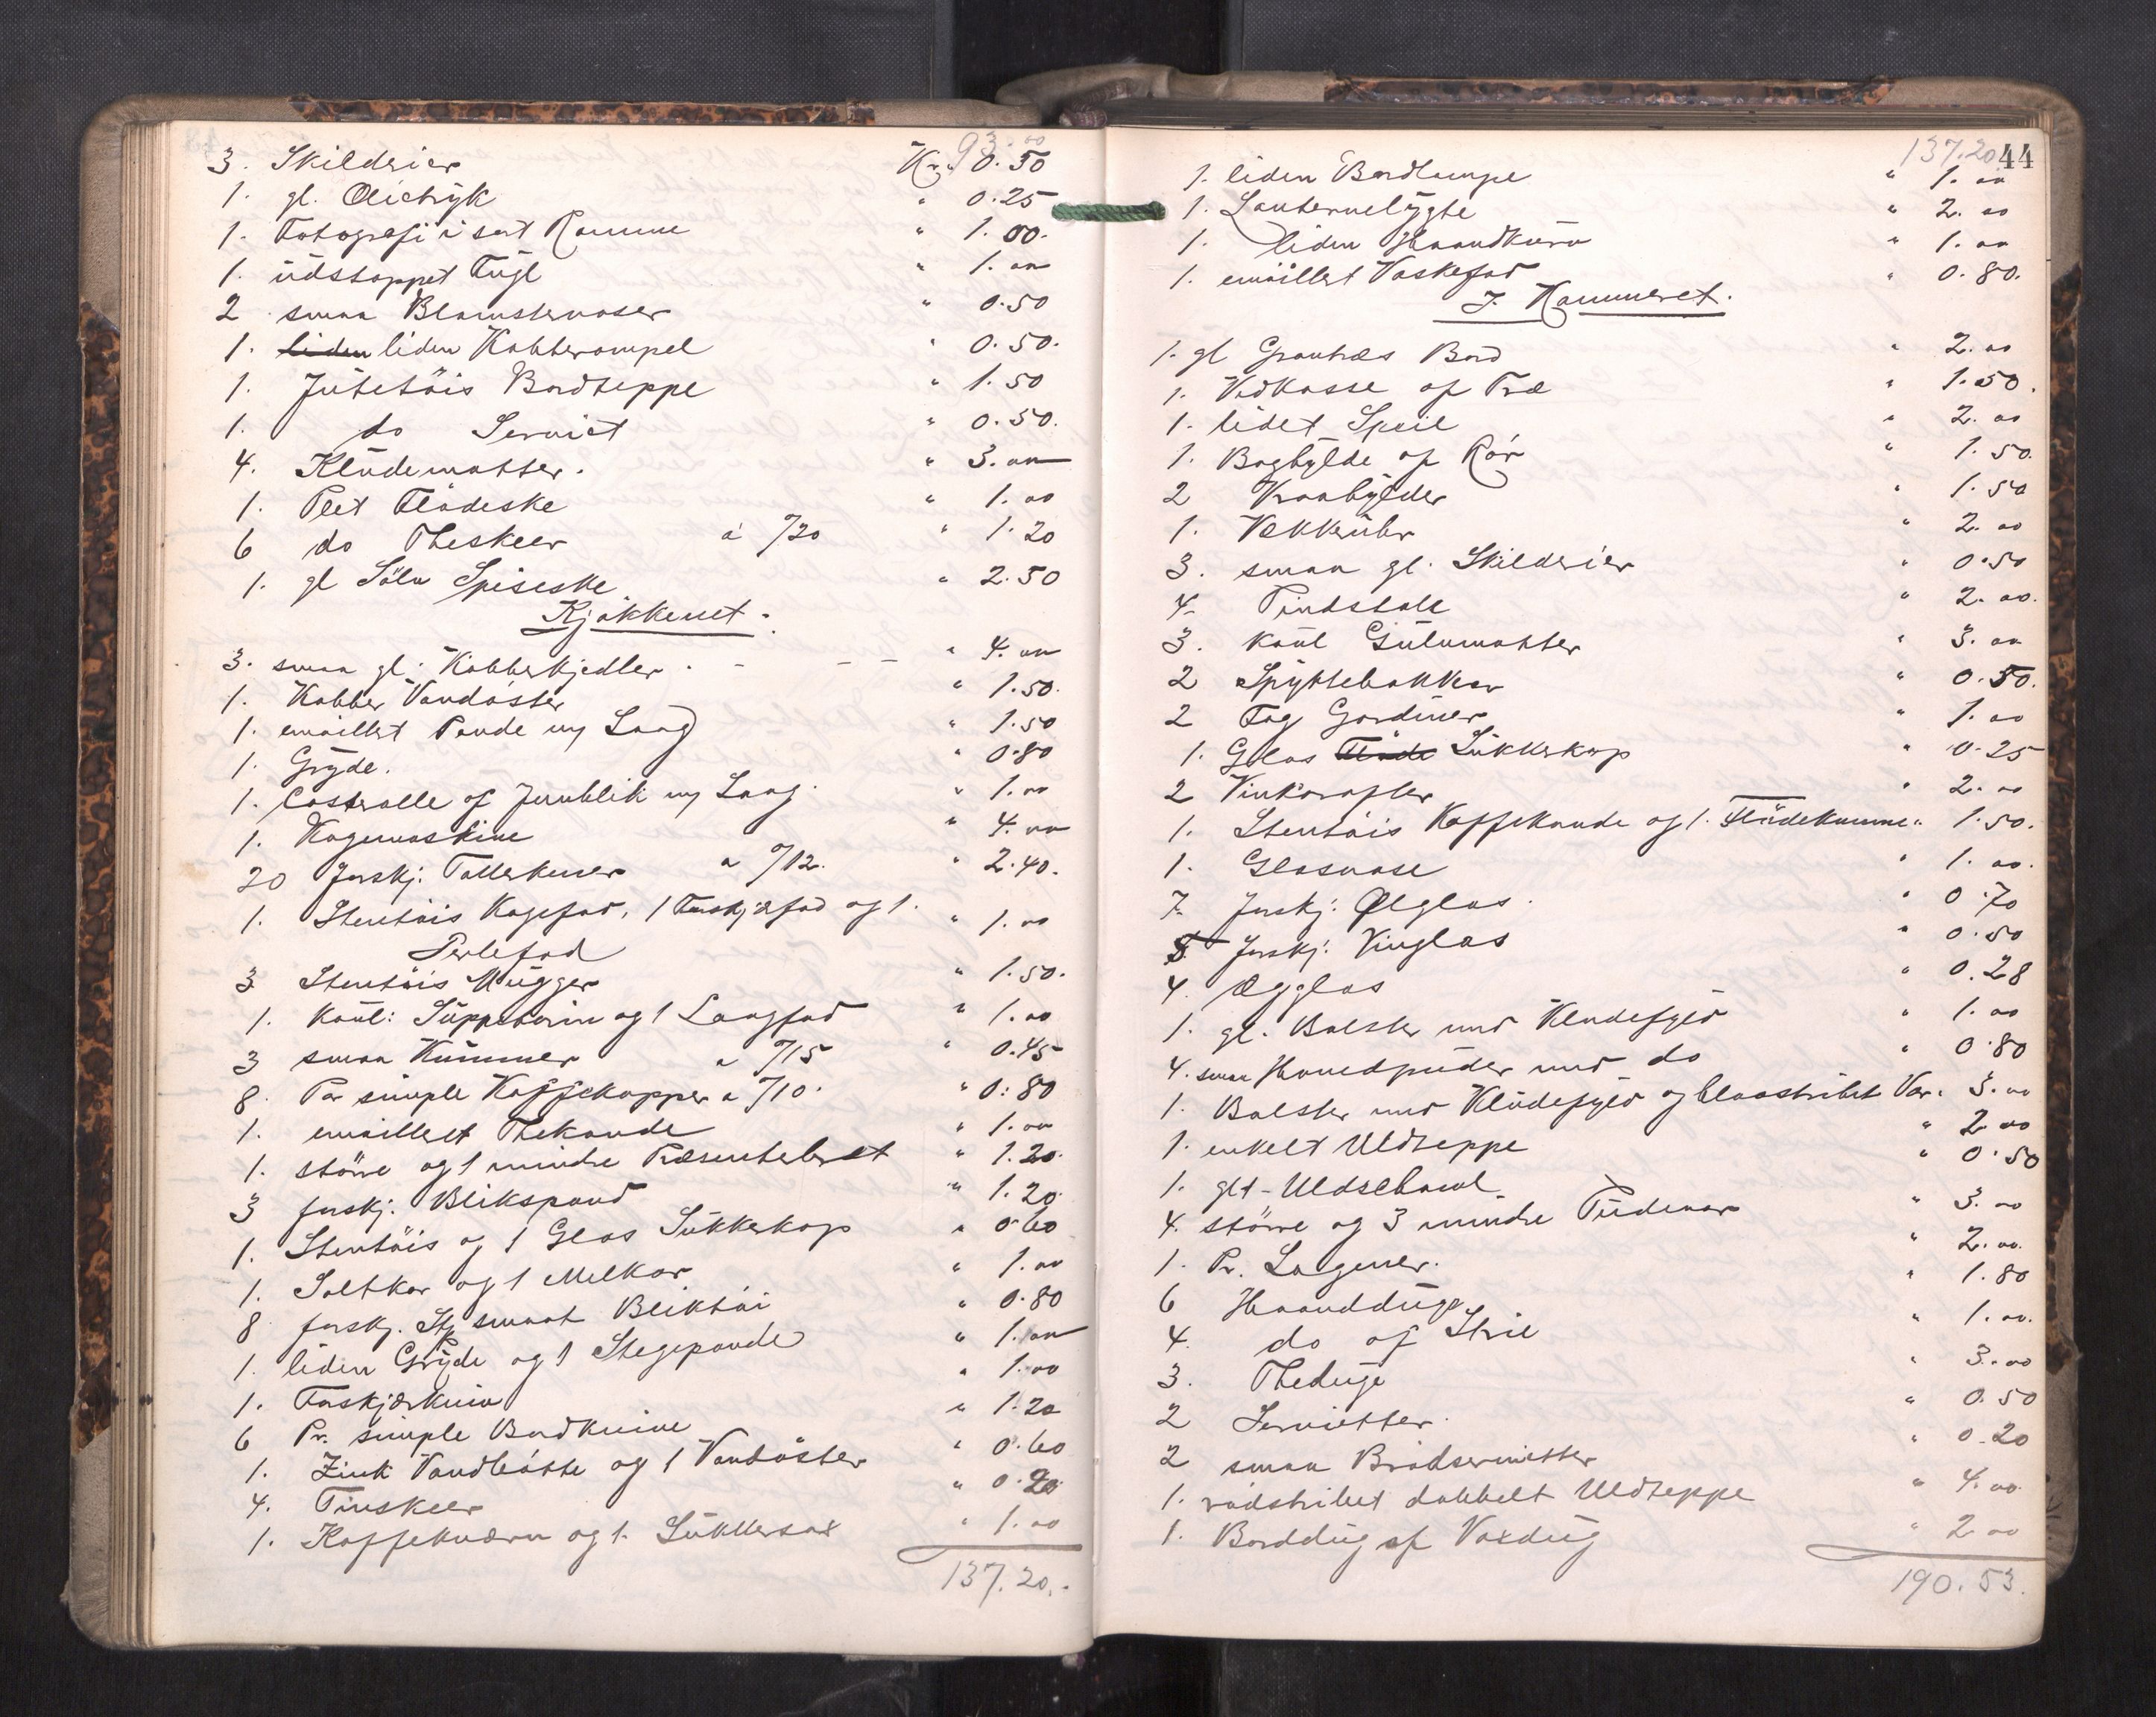 93.00
3. Skilderier Kr. 0.50
1. gl. Olietryk " 0.25
1. Fotografi i sort Ramme " 1.00.
1. udstoppet Fugl " 1.00
2 smaa Blomstervaser " 0.50
1. liden liden Kobberampel " 0.50.
1. Jütetöis Bordteppe " 1.50
1. do Serviet " 0.50.
4. Klüdematter. " 3.00
1. Plet Flödeske " 1.00
6 do Theskeer à "/20 " 1.20
1. gl Sölv Spiseske " 2.50
Kjökkenet.
3. smaa gl. Kobberkjedler. " 4.00
1. Kobber Vandöster " 1.50.
1. emaillet Pande m/ Laag " 1.50
1. Gryde. " 0.80
1. Casserolle af Jernblik m/ Laag. " 1.00
1. Kogemaskine " 4.00
20 forskj. Tallerkener a "/12. " 2.40.
1. Stentöis Kagefad, 1 Forskjærfad og 1. " 1.00
Perlefad
3 Stentöis Mügger " 1.50.
1. Koul: Süppeterin og 1 Langfad " 1.00
3 smaa Kümmer a "/15 " 0.45
8. Par simple Kaffekopper a "/10. " 0.80
1. emailleret Thekande " 1.00
1. större og 1 mindre Præsenterbret " 1.20.
3 forskj. Blikspand " 1.20.
1. Stentöis og 1 Glas Sükkerkop " 0.60
1. Saltkar og 1 Melkar " 1.00
8 forskj. Stk smaat Bliktöi " 0.80
1. liden Gryde og 1 Stegepande " 1.00
1. Forskjærkniv " 1.00
6 Pr. simple Bordknive " 1.20
1. Zink Vandbötte og 1 Vandöster " 0.60
4. Tinskeer " 0.20.
1. Kaffekværn og 1. Sükkersax " 1.00
137.20.
137.20 44
1. liden Bordlampe " 1.00
1. Lanternelygte " 2.00
1. liden Haandkurv " 1.00
1. emaillet Vaskefad " 0.80.
I. Kammeret.
1. gl Grantræs Bord " 2.00
1. Vedkasse af Træ " 1.50.
1. lidet Speil " 2.00
1. Boghylde af Rör " 1.50.
2 Kraahylder " 1.50
1. Vækkeruhr " 2.00
3. smaa gl. Skilderier " 0.50
4. Pindstole " 2.00.
3. koul Gülvmatter " 3.00
2 Spyttebakker " 0.50.
2 Fag Gardiner " 1.00
1. Glas Flöde Sükkerkop " 0.25
2 Vinkarafler " 2.00
1. Stentöis Kaffekande og 1. Flödekumme " 1.50.
1. Glasvase " 1.00.
7. forskj. Ölglas. " 0.70
5 forskj. Vinglas " 0.50
4. Ægglas " 0.28
1. gl. Bolster med Kludefyld " 1.00
4. smaa Hovedpüder med do " 0.80
1. Bolster med Klüdefyld og blaastribet Var. 3.00
1. enkelt Uldteppe " 2.00
1. glt-Uldschawl " 0.50
4. större og 3 mindre Püdevar " 3.00
1. Pr. Lagener. " 2.00.
6 Haandduge " 1.80
4. do af Strie " 1.00.
3. Theduge " 3.00
2 Servietter. " 0.50
2 smaa Brödservietter " 0.20
1. rödstribet dobbelt Uldteppe " 4.00.
1. Borddüg af Voxdüg " 2.00
190.53.